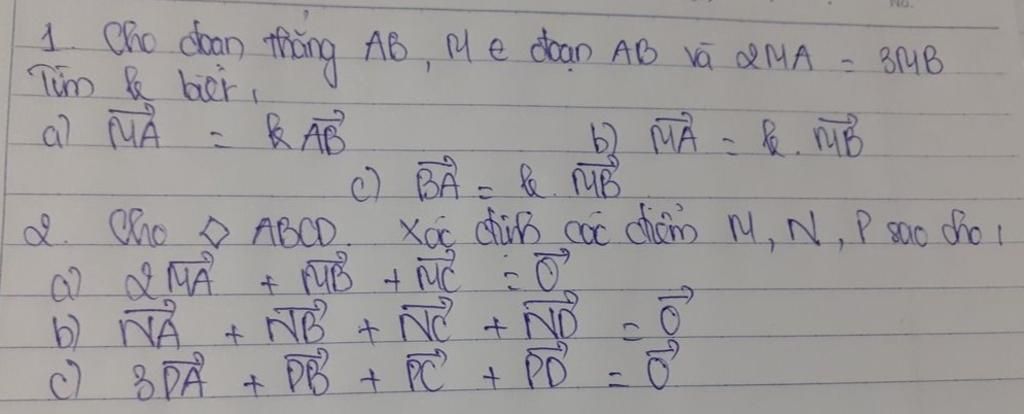 No.
1. Cho đoạn thẳng AB, M ∈ đoạn AB và 2MA = 3MB
Tìm k biết,
a) \overrightarrow{MA} = k \overrightarrow{AB} b) \overrightarrow{MA} = k. \overrightarrow{MB}
c) \overrightarrow{BA} = k. \overrightarrow{MB}
2. Cho ◇ ABCD. Xác định các điểm M, N, P sao cho,
a) 2\overrightarrow{MA} + \overrightarrow{MB} + \overrightarrow{MC} = \overrightarrow{0}
b) \overrightarrow{NA} + \overrightarrow{NB} + \overrightarrow{NC} + \overrightarrow{ND} = \overrightarrow{0}
c) 3\overrightarrow{PA} + \overrightarrow{PB} + \overrightarrow{PC} + \overrightarrow{PD} = \overrightarrow{0}